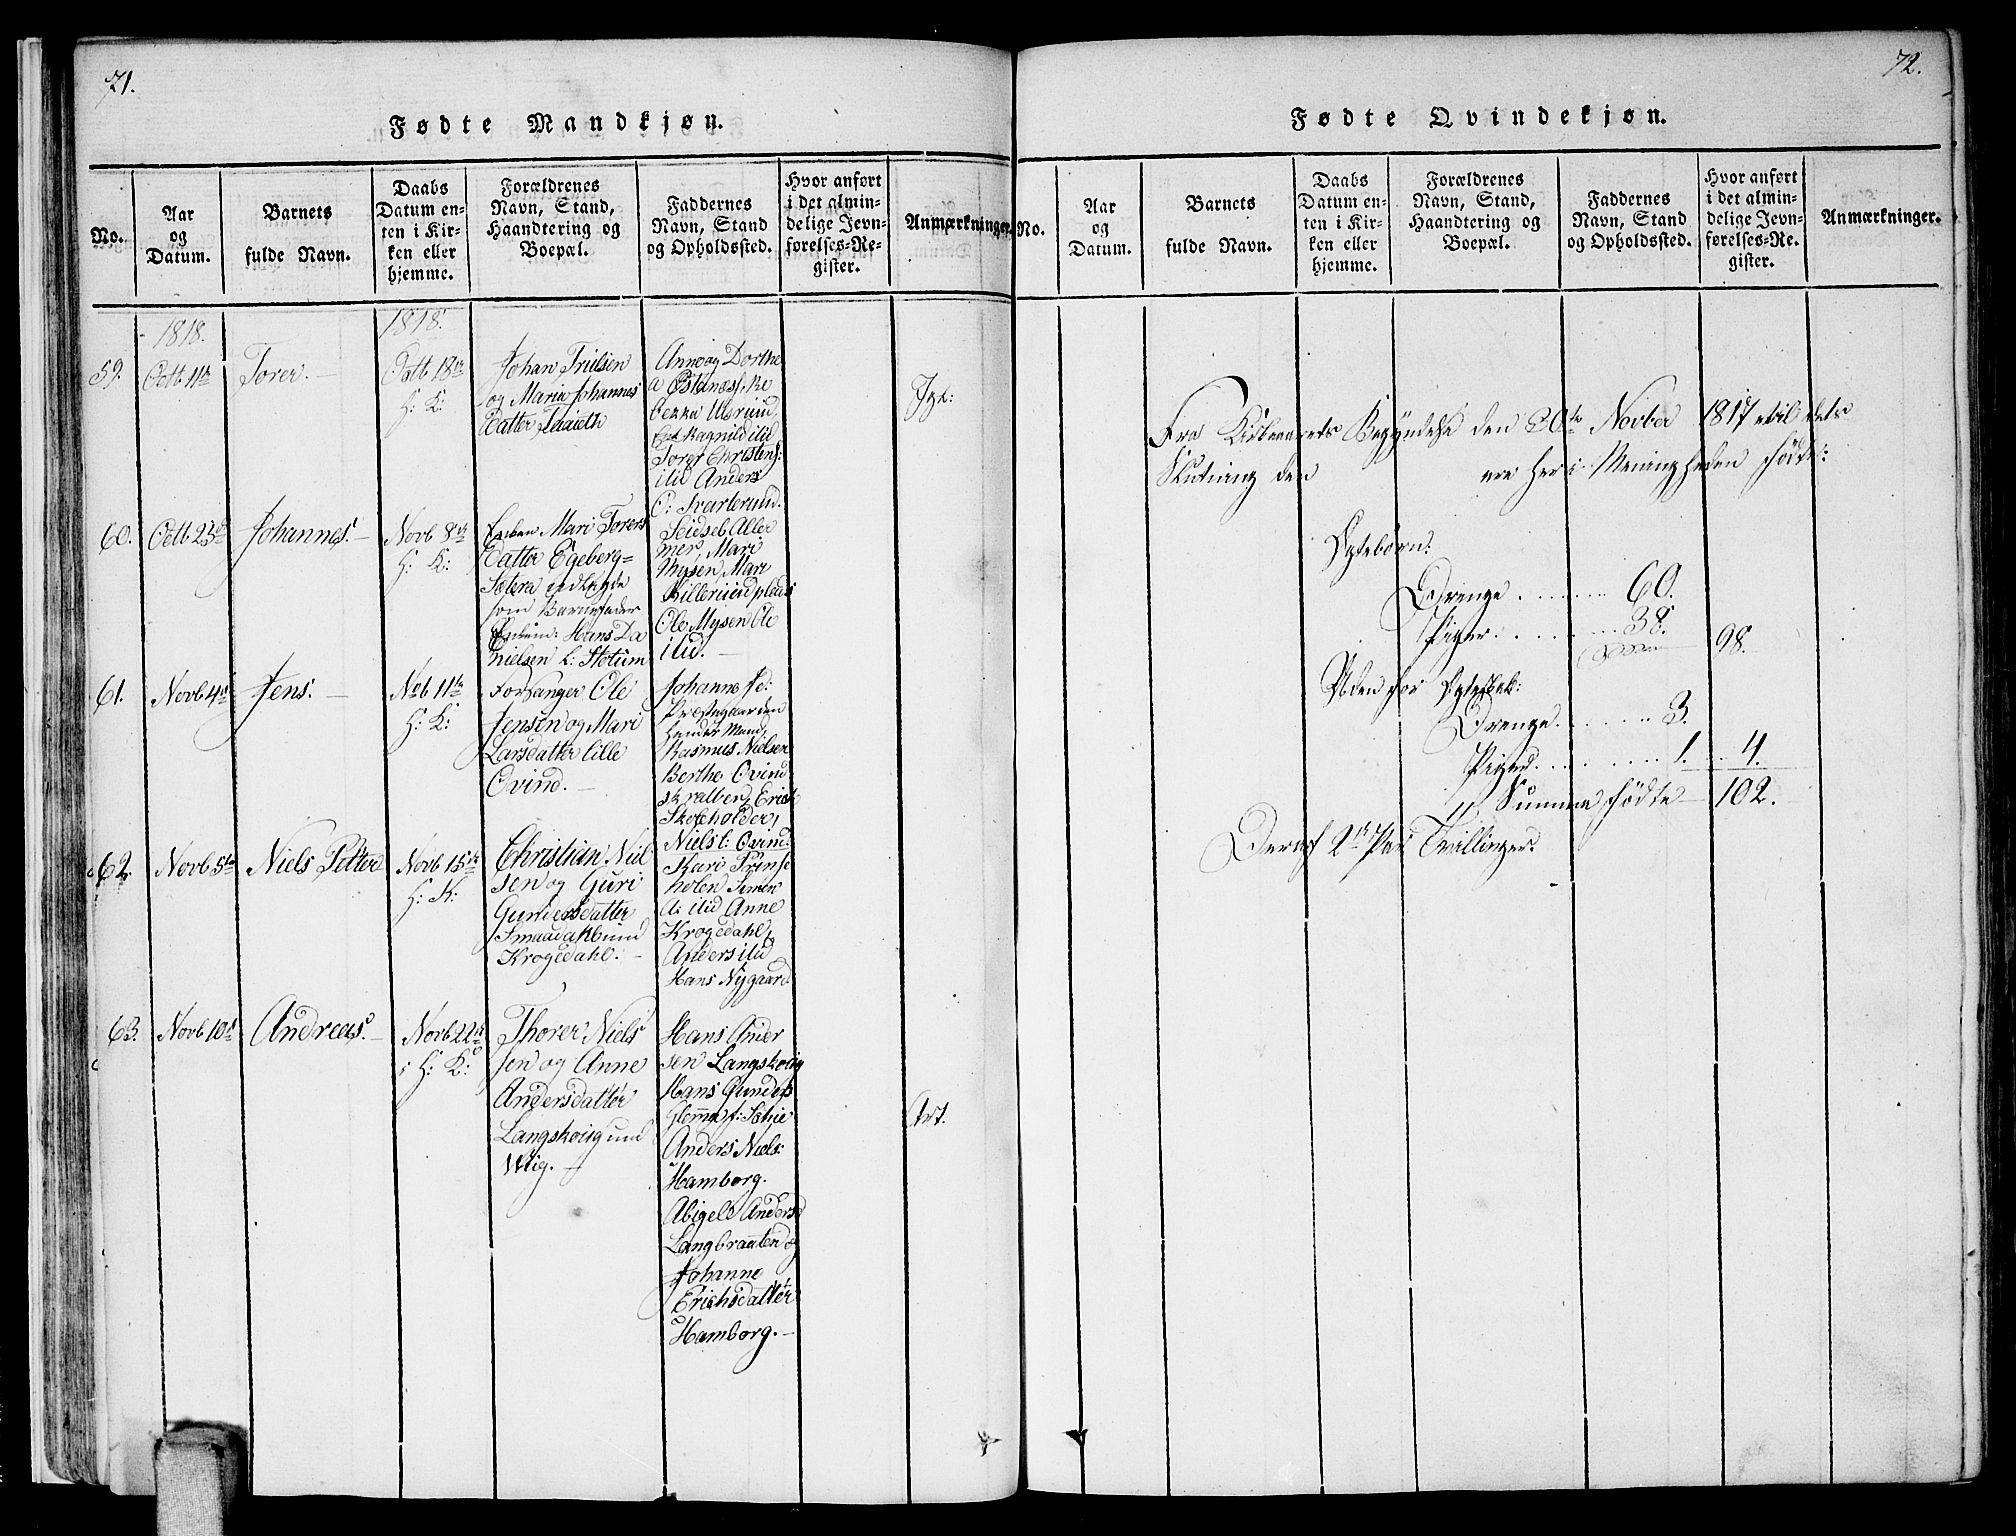 71.
Fødte Mandkjøn.
No.
Aar
og
Datum.
Barnets
fulde Navn.
Daabs
Datum en-
ten i Kir-
ken eller
hjemme.
Forældrenes
Navn, Stand,
Haandtering og
Boepæl.
Faddernes
Navn, Stand
og Opholdssted.
Hvor anført
i det almin-
delige Jevn-
førelses-Re-
gister.
Anmærkninger.
1818.
1818.
59.
Octb 11te
Torer.
Octb 18de
H: K:
Johan
og Maria Johannes
Datter
Anne og Dorthe
Ragnild ibid
Torer Christens:
ibid Anders
O: Svarterud.
60.
Octb 23de
Johannes.
Novb 8de
H: K:
Mari Torers
Datter Egeberg=
Sætera udlagde
som Barnefader
Hans Da
nielsen
Seidsel Aller
mer, Mari
Mysen Mari
Killerudplads
Ole Mysen Ole
ibid.
61.
Novb 4de
Jens.
Novb 11te
H: K:
Forsanger Ole
Jensen og Mari
Larsdatter Lille
Qvind.
Johanne
Præstegaarden
Rasmus Nielsen
Berthe Qvind
Erick
Skoleholder,
Niels l: Qvind.
62.
Novb 5te
Niels Petter
Novb 15de
H: K:
Christian Niel
sen og Guri
Gundersdatter
Smaadahl und
Krogedahl.
Kari
holen Simen
ibid Anne
Krogedahl,
Anders ibid
Hans Nygaard
63.
Novb 10de
Andreas.
Novb 22de
i H: K:
Thorer Niels
sen og Anne
Andersdatter
Langskoug und
Wiig.
Hans Ander
sen Langskoug
Hans Gunders
Anders Niels:
Hamborg.
Abigell Anders
Langbraaten og
Johanne
Erichsdatter
Hamborg.
72.
Fødte Qvindekjøn.
No.
Aar
og
Datum.
Barnets
fulde Navn.
Daabs
Datum en-
ten i Kir-
ken eller
hjemme.
Forældrenes
Navn, Stand,
Haandtering og
Boepæl.
Faddernes
Navn, Stand
og Opholdssted.
Hvor anført
i det almin-
delige Jevn-
førelses-Re-
gister.
Anmærkninger.
Fra Kirkeaarets Begyndelse den 30te Novber 1817 til dets
Slutning den ere her i Menigheden fødte:
Ægtebørn:
Drenge . . . . . . 60.
Piger . . . . . . 38. 98.
Uden for Ægteskab:
Drenge . . . . . . 3.
Piger . . . . . . 1. 4.
Summa fødte 102.
Deraf 2de Par Tvillinger.